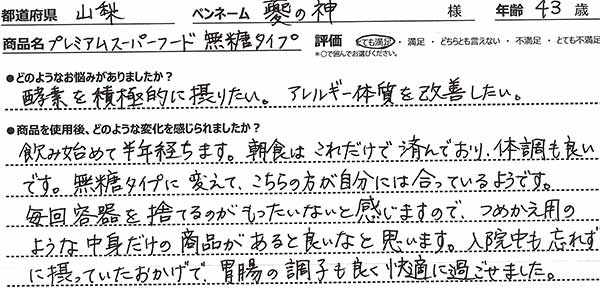 都道府県 山梨 ペンネーム 夔の神 様 年齢 43 歳
商品名 プレミアムスーパーフード 無糖タイプ 評価 とても満足 ・ 満足 ・ どちらとも言えない ・ 不満足 ・ とても不満足
※○で囲んでお選びください。
●どのようなお悩みがありましたか?
酵素を積極的に摂りたい。アレルギー体質を改善したい。
●商品を使用後、どのような変化を感じられましたか?
飲み始めて半年経ちます。朝食はこれだけで済んでおり、体調も良い
です。無糖タイプに変えて、こちらの方が自分には合っているようです。
毎回容器を捨てるのがもったいないと感じますので、つめかえ用の
ような中身だけの商品があると良いなと思います。入院中も忘れず
に摂っていたおかげで、胃腸の調子も良く快適に過ごせました。